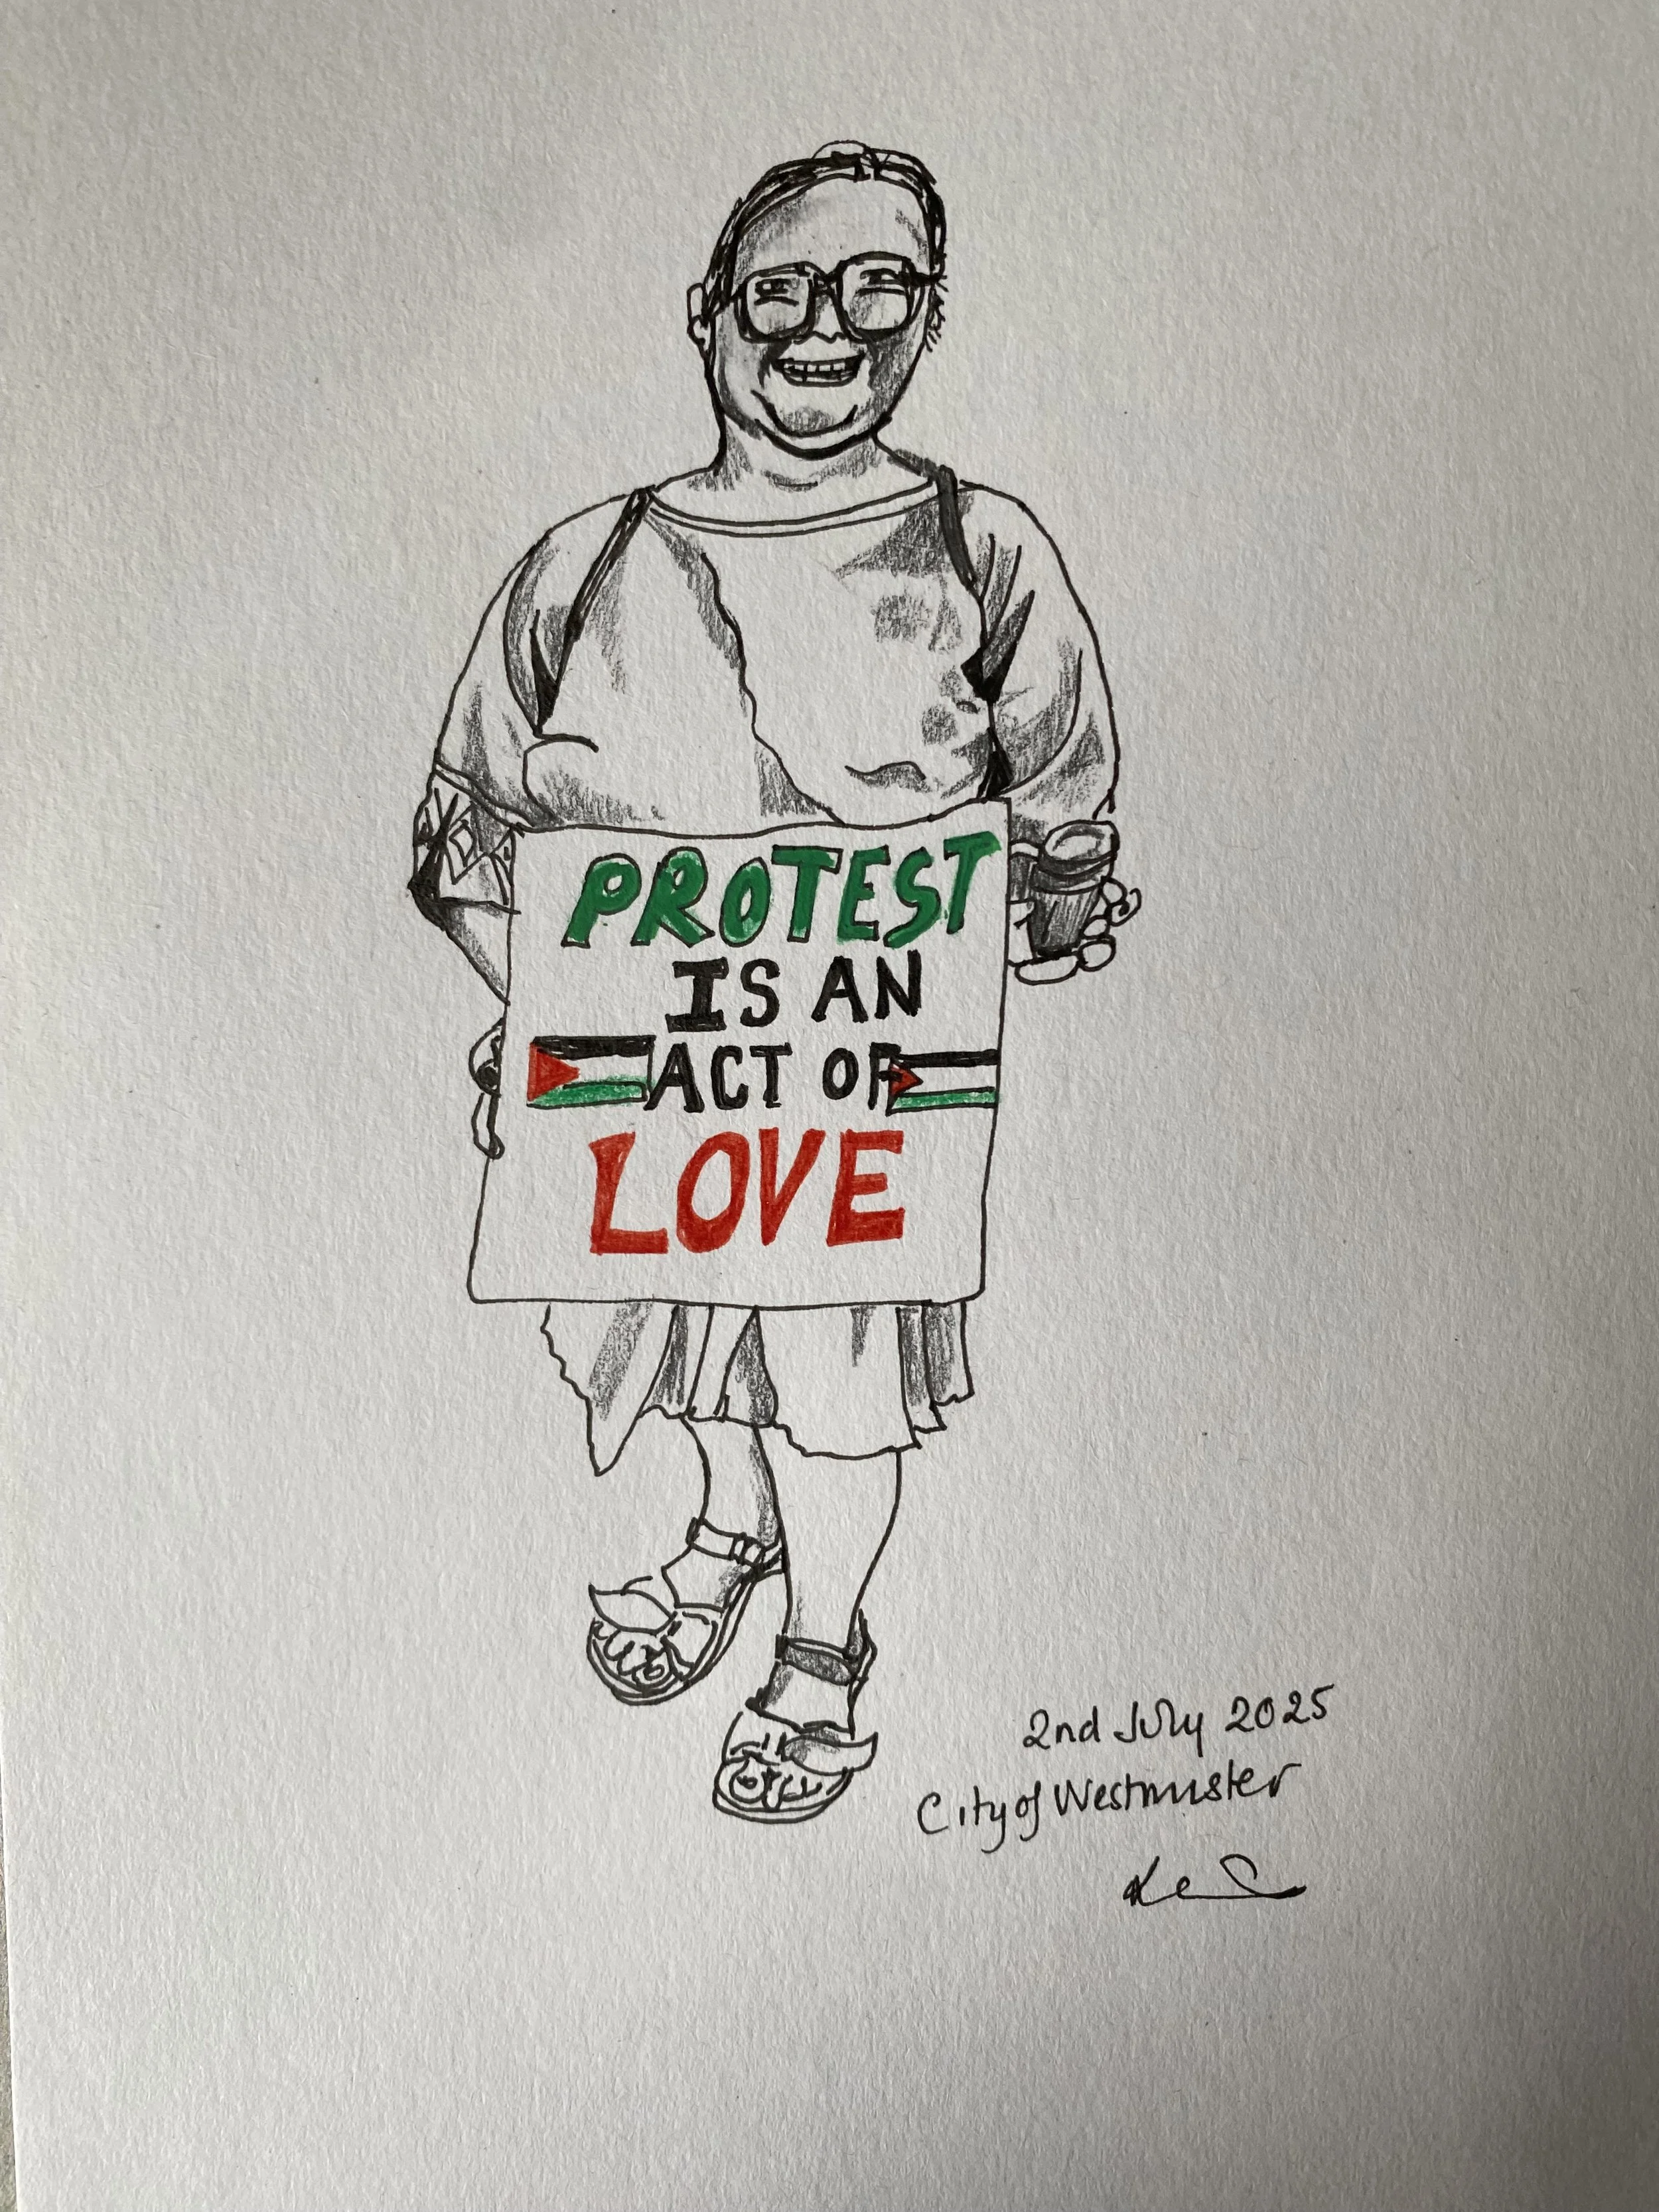 PROTEST
IS AN
ACT OF
LOVE
2nd July 2025
City of Westminster